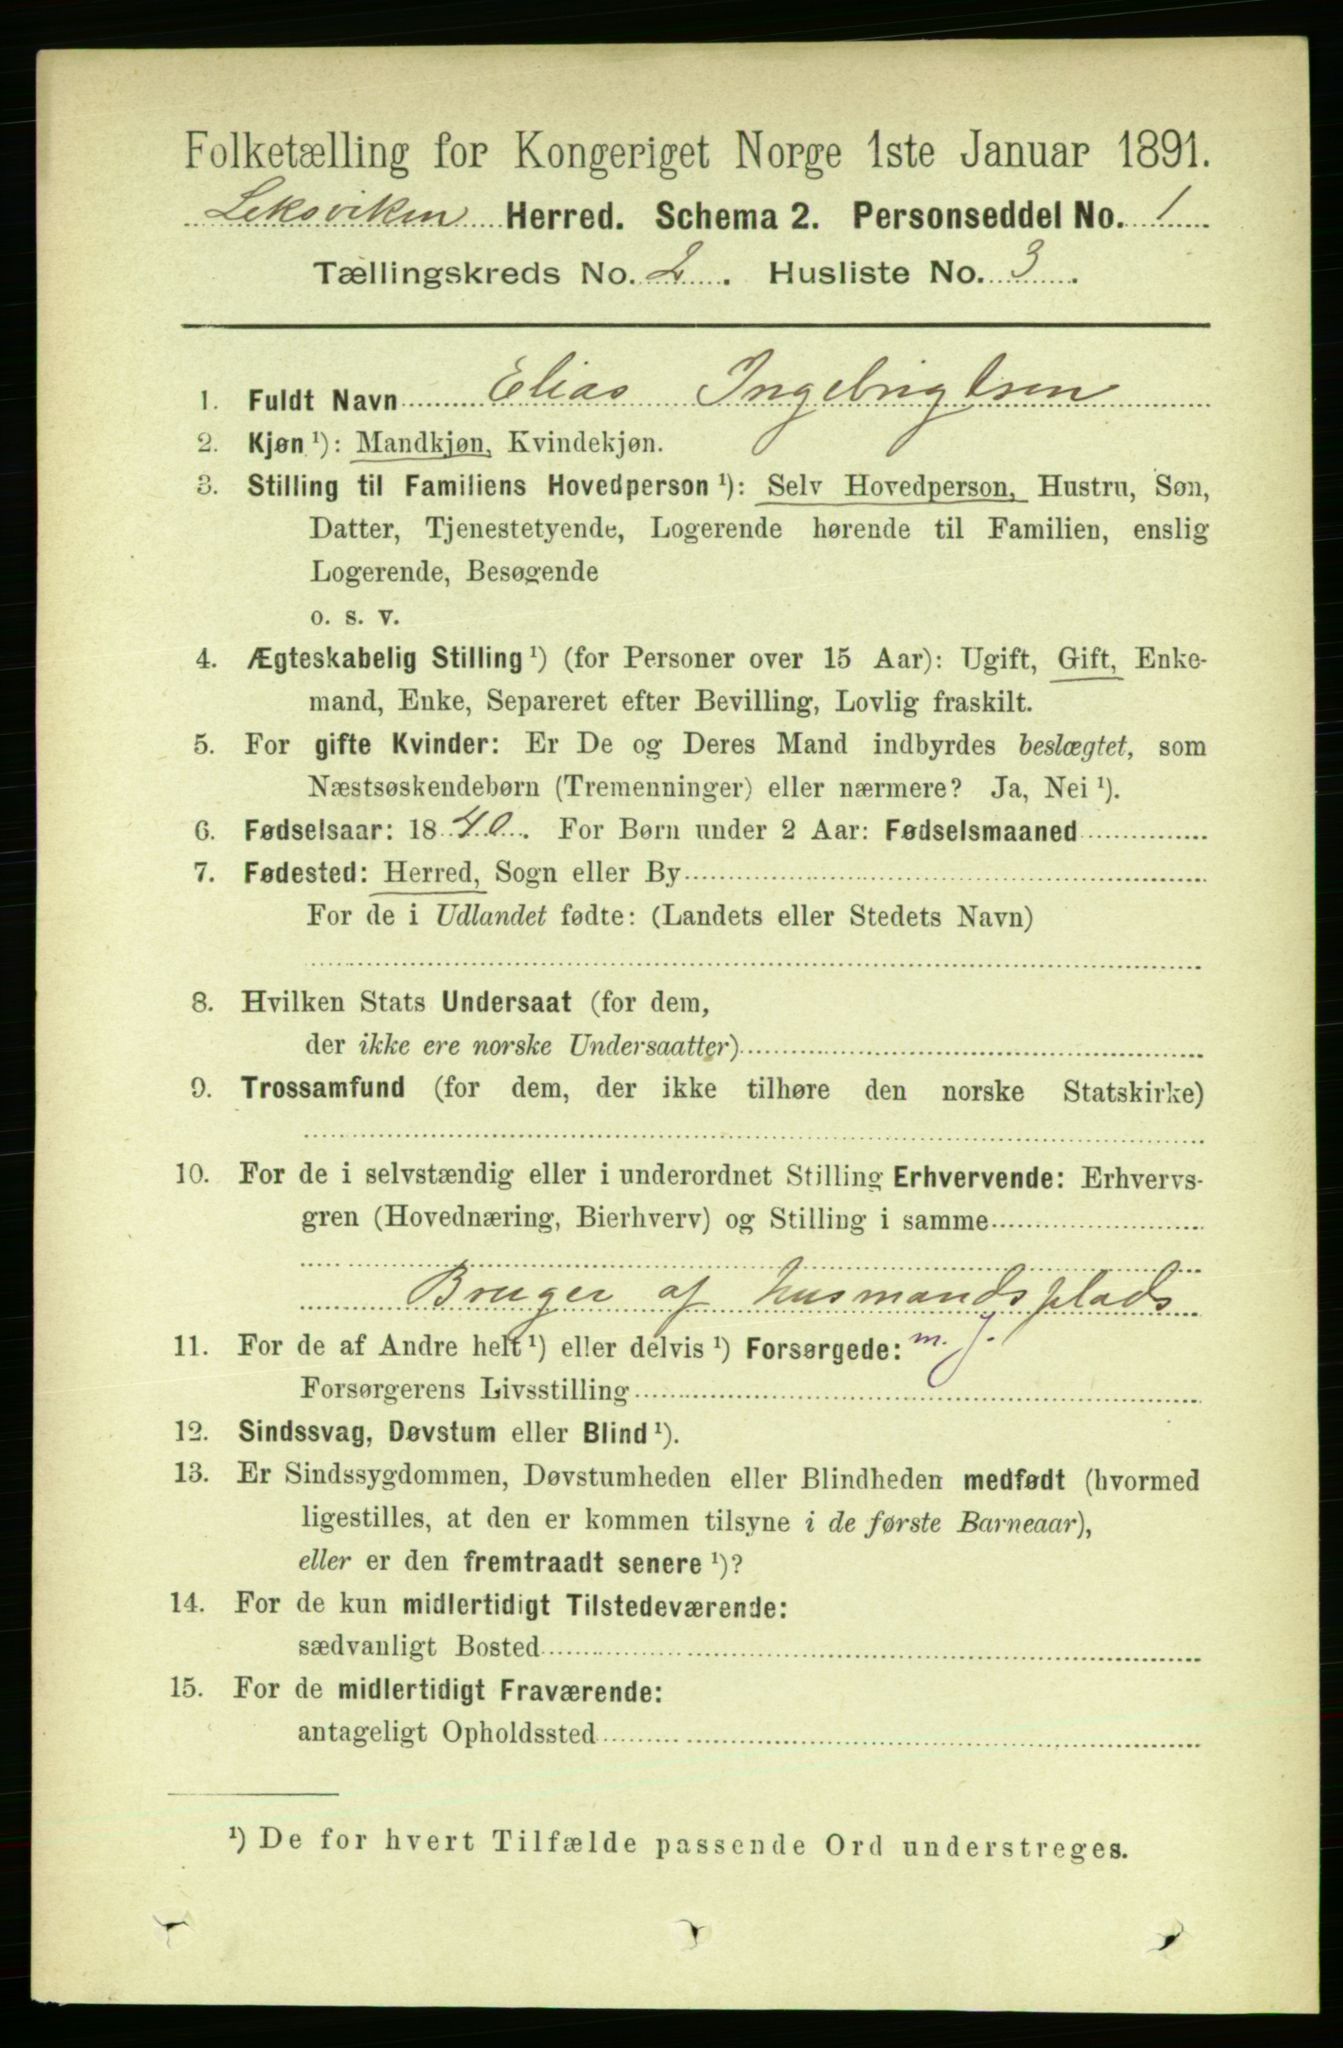 Folketælling for Kongeriget Norge 1ste Januar 1891.
Leksviken Herred. Schema 2. Personseddel No. 1
Tællingskreds No. 2. Husliste No. 3.
1. Fuldt Navn Elias Ingebrigtsen
2. Kjøn ¹): Mandkjøn, Kvindekjøn.
3. Stilling til Familiens Hovedperson ¹): Selv Hovedperson, Hustru, Søn,
Datter, Tjenestetyende, Logerende hørende til Familien, enslig
Logerende, Besøgende
o. s. v.
4. Ægteskabelig Stilling ¹) (for Personer over 15 Aar): Ugift, Gift, Enke-
mand, Enke, Separeret efter Bevilling, Lovlig fraskilt.
5. For gifte Kvinder: Er De og Deres Mand indbyrdes beslægtet, som
Næstsøskendebørn (Tremenninger) eller nærmere? Ja, Nei ¹).
6. Fødselsaar: 1840. For Børn under 2 Aar: Fødselsmaaned
7. Fødested: Herred, Sogn eller By
For de i Udlandet fødte: (Landets eller Stedets Navn)
8. Hvilken Stats Undersaat (for dem,
der ikke ere norske Undersaatter)
9. Trossamfund (for dem, der ikke tilhøre den norske Statskirke)
10. For de i selvstændig eller i underordnet Stilling Erhvervende: Erhvervs-
gren (Hovednæring, Bierhverv) og Stilling i samme
Bruger af husmandsplads
11. For de af Andre helt ¹) eller delvis ¹) Forsørgede: m. j.
Forsørgerens Livsstilling
12. Sindssvag, Døvstum eller Blind ¹).
13. Er Sindssygdommen, Døvstumheden eller Blindheden medfødt (hvormed
ligestilles, at den er kommen tilsyne i de første Barneaar),
eller er den fremtraadt senere ¹)?
14. For de kun midlertidigt Tilstedeværende:
sædvanligt Bosted
15. For de midlertidigt Fraværende:
antageligt Opholdssted
¹) De for hvert Tilfælde passende Ord understreges.